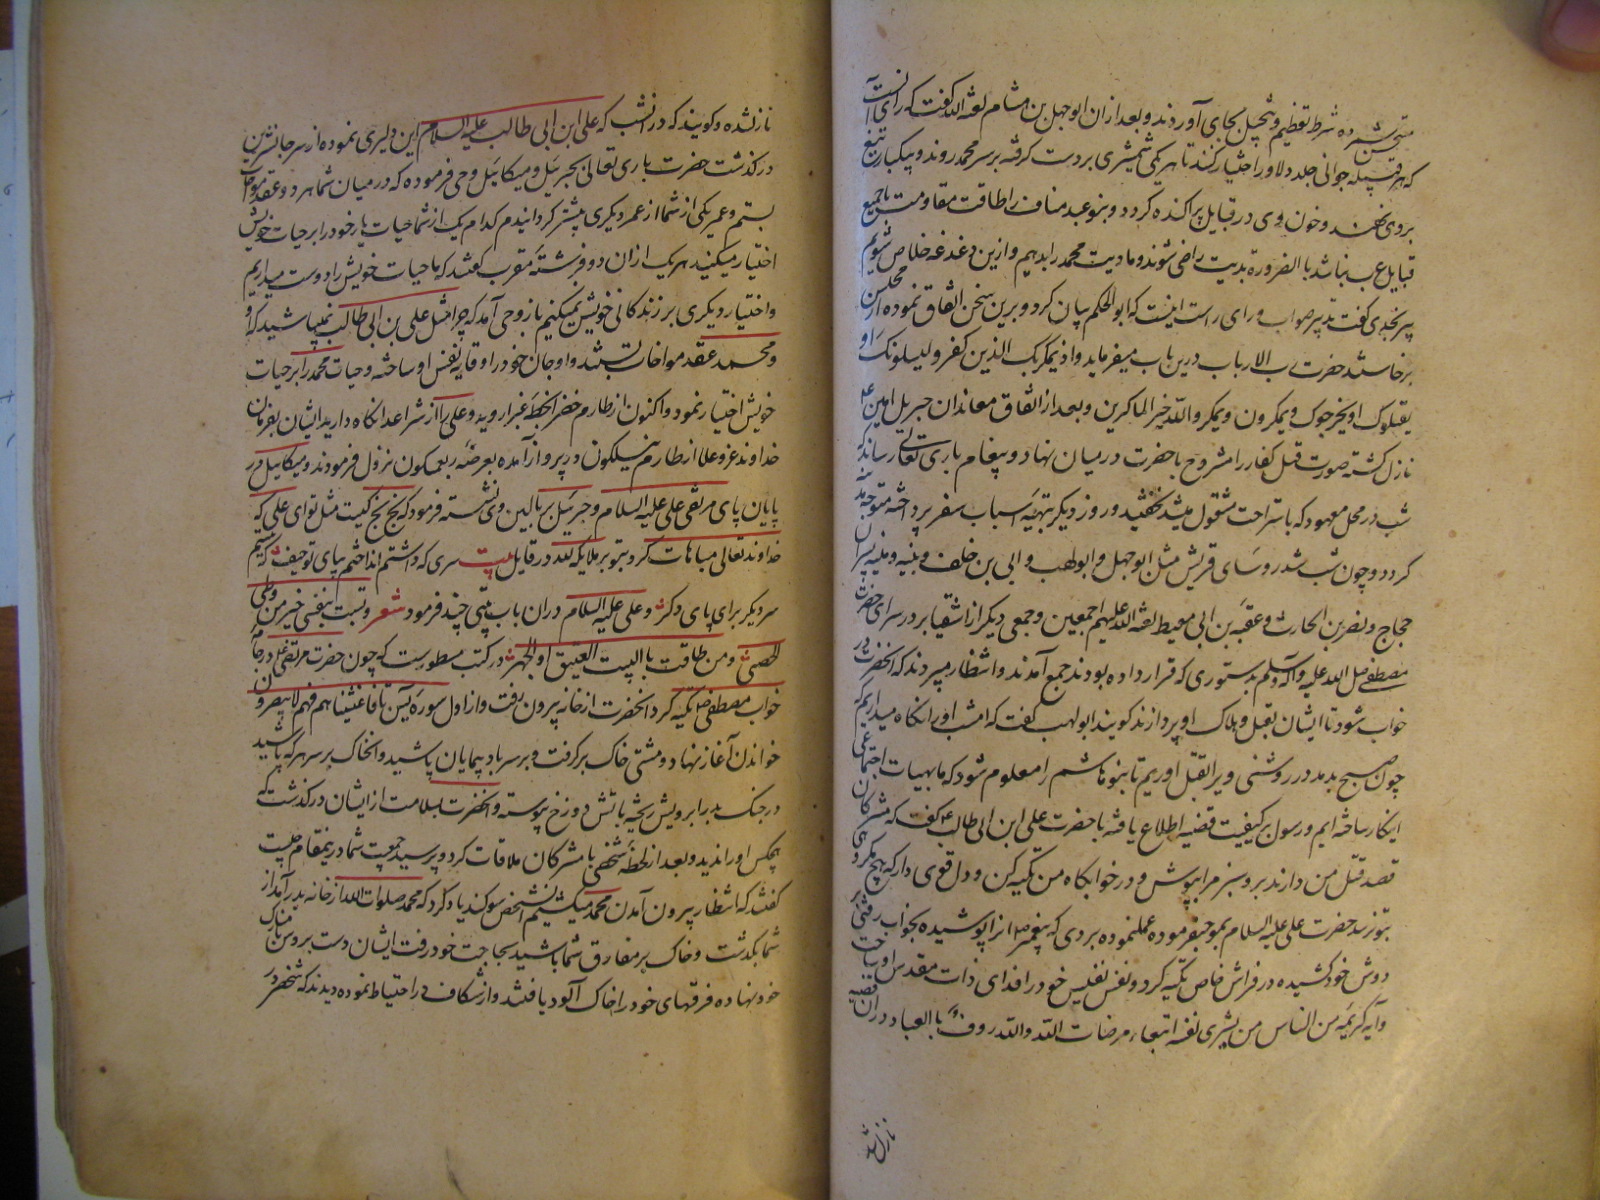 متحسن شمرده شرط تعظیم و تبجیل بجای آوردند و بعد ازان ابوجهل بن هشام لعنه الله کفت که رای آنست
که از هر قبیله جوانی جلد دلاور اختیار کنند تا هر یکی شمشیری بر دست کرفته بر سر محمد روند و بیکبار تیغ
بر وی نهند و خون وی در قبایل پراکنده کردد و بنو عبد مناف را طاقت مقاومت با جمیع
قبایل عرب نباشد بالضروره بدیت راضی شوند و ما دیت محمد را بدهیم و ازین دغدغه خلاص شویم
پیر نجدی کفت تدبیر صواب و رای راست اینست که ابوالحکم بیان کرد و برین سخن اتفاق نموده از مجلس
برخاستند حضرت رب الارباب درین باب میفرماید واذ یمکر بک الذین کفرو لیسلونک او
یقتلوک او یخرجوک و یمکرون و یمکر والله خیر الماکرین و بعد از اتفاق معاندان جبریل امین ع
نازل کشته صورت قتل کفار را مشروح با حضرت درمیان نهاد و پیغام باری تعالی رساند که
شب در محل معهود که باستراحت مشغول میشد نخفتید و روز دیکر بتهیه اسباب سفر پرداخته متوجه مدینه
کردد و چون شب شد روسای قریش مثل ابوجهل و ابولهب و ابی بن خلف و بنیه و منبه پسران
حجاج و نضر بن الحارث و عقبه بن ابی معیط لعنه الله علیهم اجمعین و جمعی دیکر از اشقیا بر در سرای حضرت
مصطفی صلی الله علیه و آله وسلم بدستوری که قرار داده بودند جمع آمدند و انتظار میبردند که آنحضرت در
خواب شود تا ایشان بقتل و هلاک او پردازند کویند ابولهب کفت که امشب او را نکاه میداریم که
چون صبح بدمد در روشنی ویرا بقتل اوریم تا بنو هاشم را معلوم شود که ما بهیات اجتماعی
اینکار ساخته ایم و رسول بر کیفیت قضیه اطلاع یافته با حضرت علی ابن ابی طالب ع کفت که مشرکان
قصد قتل من دارند برو سبز مرا بپوش و در خوابکاه من تکیه کن و دل قوی دار که هیچ مکروهی
بتو نرسد حضرت علی علیه السلام بموجب فرموده عمل نموده بردی که پیغمبر ص انرا پوشیده بخواب رفتی بر
دوش خود کشیده در فراش خاص تکیه کرد و نفس نفیس خود را فدای ذات مقدس او ساخت
و آیه کریمه من الناس من یشری نفسه ابتغاء مرضات الله والله روف بالعباد دران قضیه
نازل شد
نازلشده و کویند که در انشب که علی ابن ابی طالب علیه السلام این دلیری نموده از سر جان شیرین
در کذشت حضرت باری تعالی بجبرئیل و میکائیل وحی فرموده که در میان شما هر دو عقد مواخات
بستم و عمر یکی از شما از عمر دیکری بیشتر کردانیدم کدام یک از شما حیات یار خود را بر حیات خویش
اختیار میکنید هر یک ازان دو فرشته مقرب کفتند که ما حیات خویش را دوست میداریم
و اختیار دیکری بر زندکانی خویش نمیکنیم باز وحی آمد که چرا مثل علی بن ابی طالب نمیباشید که او
و محمد عقد مواخات بستند و او جان خود را وقایه نفس او ساخته و حیات محمد را بر حیات
خویش اختیار نمود و اکنون از طارم خضرا بخطه غبرا روید و علی را از شر اعدا نکاه دارید ایشان بفرمان
خداوند عز و علا از طارم نیلکون در پرواز آمده بعرصه ربع مسکون نزول فرمودند و میکائیل در
پایان پای مرتضی علی علیه السلام و جبرئیل بر بالین وی نشسته فرمود که بخ بخ کیست مثل تو ای علی که
خداوند تعالی مباهات کرد بتو بر ملایکه لقد در قایل بیت سری که داشتم انداختم بپای تو حیفست که نیم
سر دیکر برای پای دکر و علی علیه السلام دران باب بیتی چند فرمود شعر وقیت بنفسی خیر من وطی
الحصی و من طاف بالبیت العتیق و الحجر در کتب مسطورست که چون حضرت مرتضی علی در جامه
خواب مصطفی ص تکیه کرد انحضرت از خانه بیرون رفت و از اول سوره یس تا فاغشیناهم فهم لا یبصرون
خواندن آغاز نهاد و مشتی خاک برکرفت و بر سر باد پیمایان پاشید و انخاک بر سر هر که پاشید
در جنک بدر ابرویش ریخته باتش دوزخ پیوسته و انحضرت بسلامت از ایشان در کذشت که
هیچکس او را ندید و بعد از لحظه شخصی با مشرکان ملاقات کرد و پرسید جمعیت شما درینمقام چیست
کفتند که انتظار بیرون آمدن محمد میکشیم انشخص سوکند یاد کرد که محمد صلوات الله از خانه بدر آمد از
شما بکذشت و خاک بر مفارق شما پاشید بحاجت خود رفت ایشان دست بر و سر مبارک
خود نهاده فرقهای خود را خاک آلود یافتند و از شکاف در احتیاط نموده دیدند که شخص در